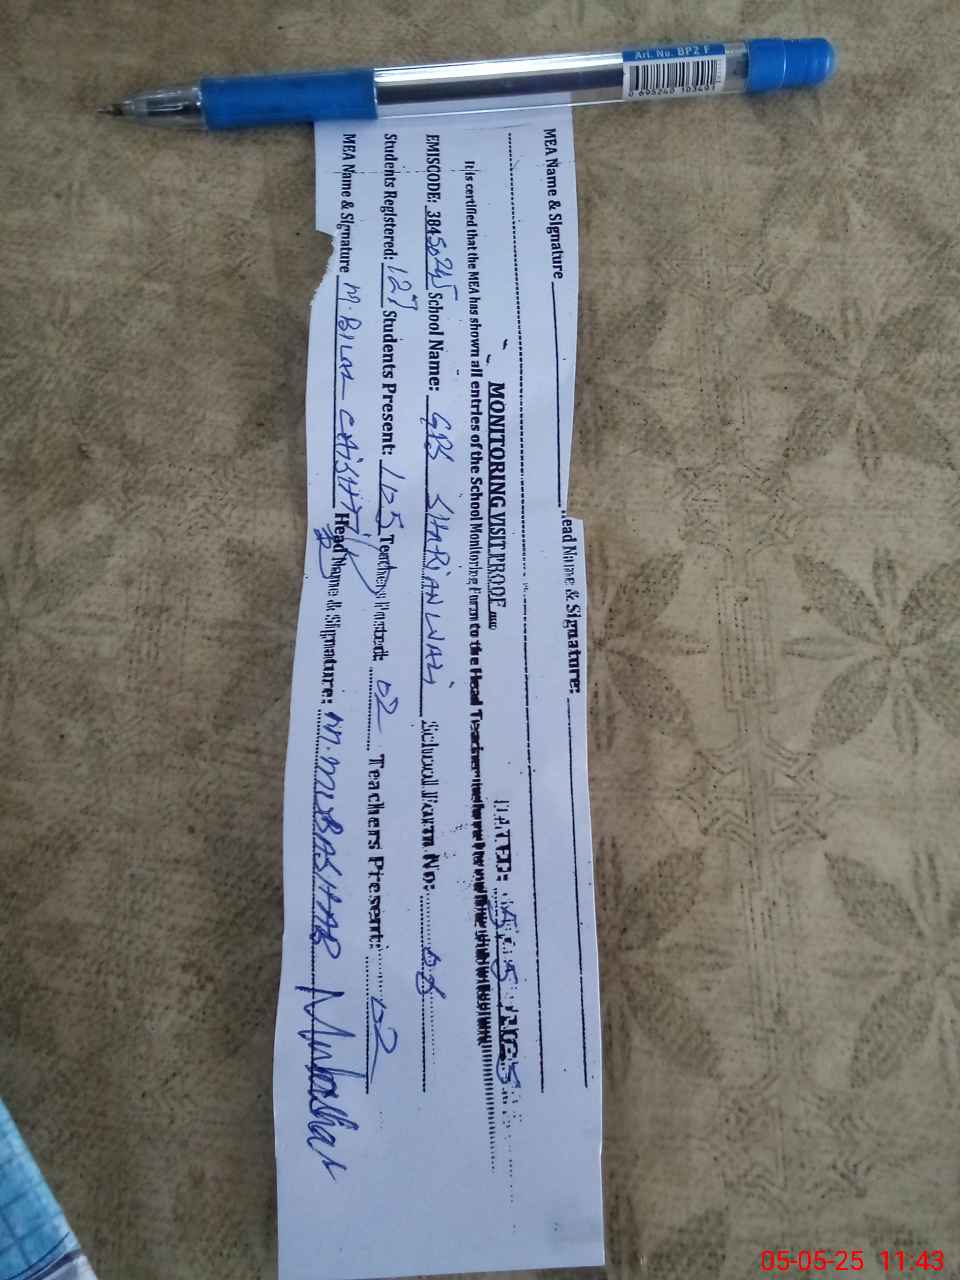 Art. No. BP2 F
0 695240 103497
MEA Name & Signature Head Name & Signature:
MONITORING VISIT PROOF
DATED: 05 05 2025
It is certified that the MEA has shown all entries of the School Monitoring Form to the Head Teacher
EMISCODE: 38450245 School Name: GPS SHARIANWALI School Form No: 08
Students Registered: 127 Students Present: 105 Teachers Posted: 02 Teachers Present: 02
MEA Name & Signature M. BILAL CHISHTI Head Name & Signature: M. MUBASHAR Mubashar
05-05-25 11:43